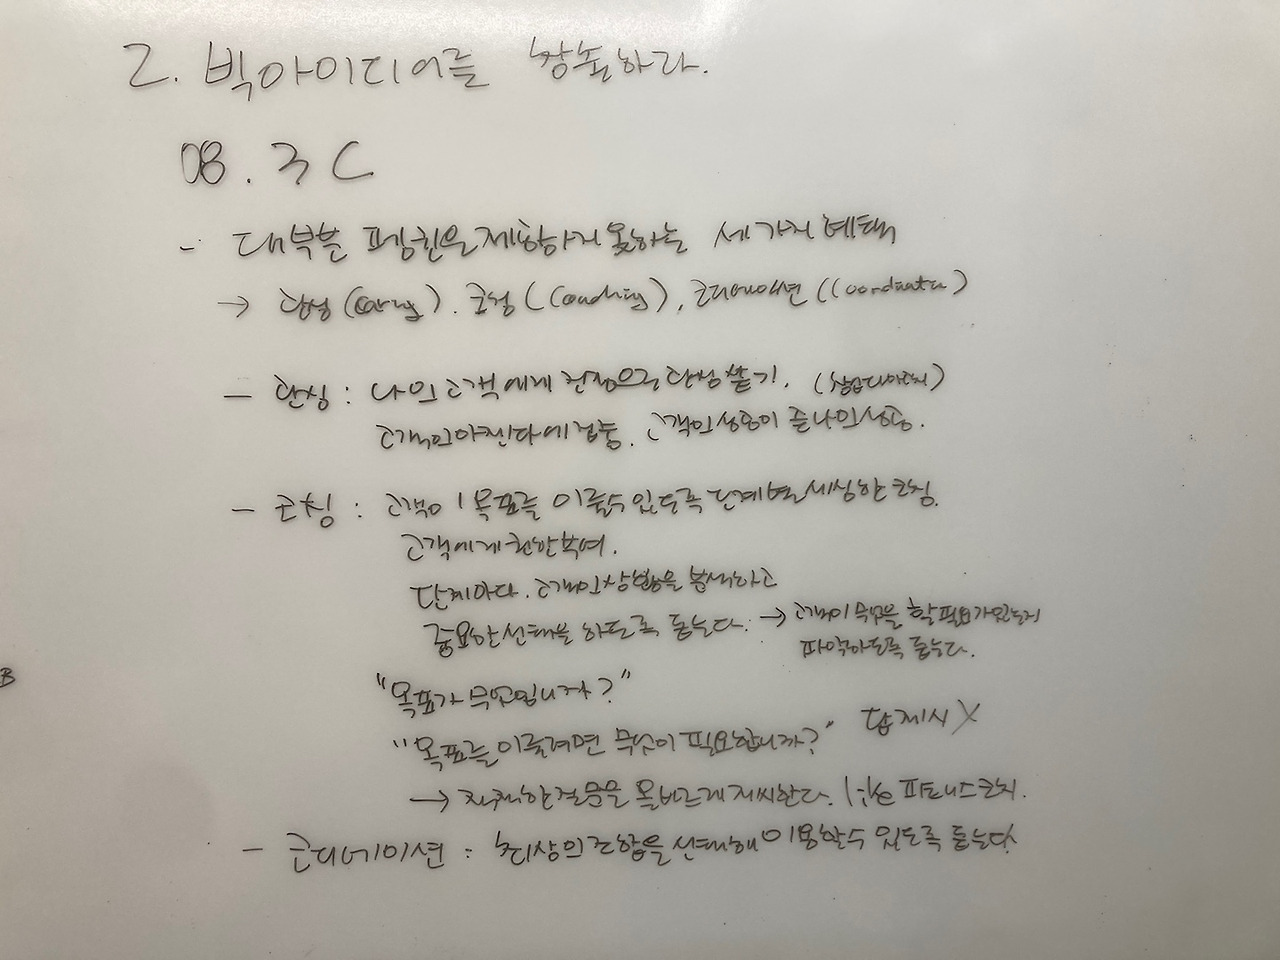 2. 빅아이디어를 창출하라.
08. 3C
- 대부분 평범은제공하지 못하는 세가지 혜택
→ 관심(caring). 코칭(Coaching), 코디네이션(Coordinate)
- 관심: 나의 고객에게 진정으로 관심 쏟기.
고객의 에 집중. 고객의성공이 곧나의성공.
- 코칭: 고객이 목표를 이룰수 있도록 단계별 세심한 코칭.
고객에게 권한부여.
단계마다. 고객의상황을 분석하고
중요한선택을 하도록 돕는다. → 고객이 무엇을 할필요가있는지
파악하도록 돕는다.
"목표가 무엇입니까?"
"목표를 이루려면 무엇이 필요합니까?" 답 제시 X
→ 적절한질문을 올바르게제시한다. like 피트니스코치.
- 코디네이션: 최상의 조합을 선택해 이용할수 있도록 돕는다.
B